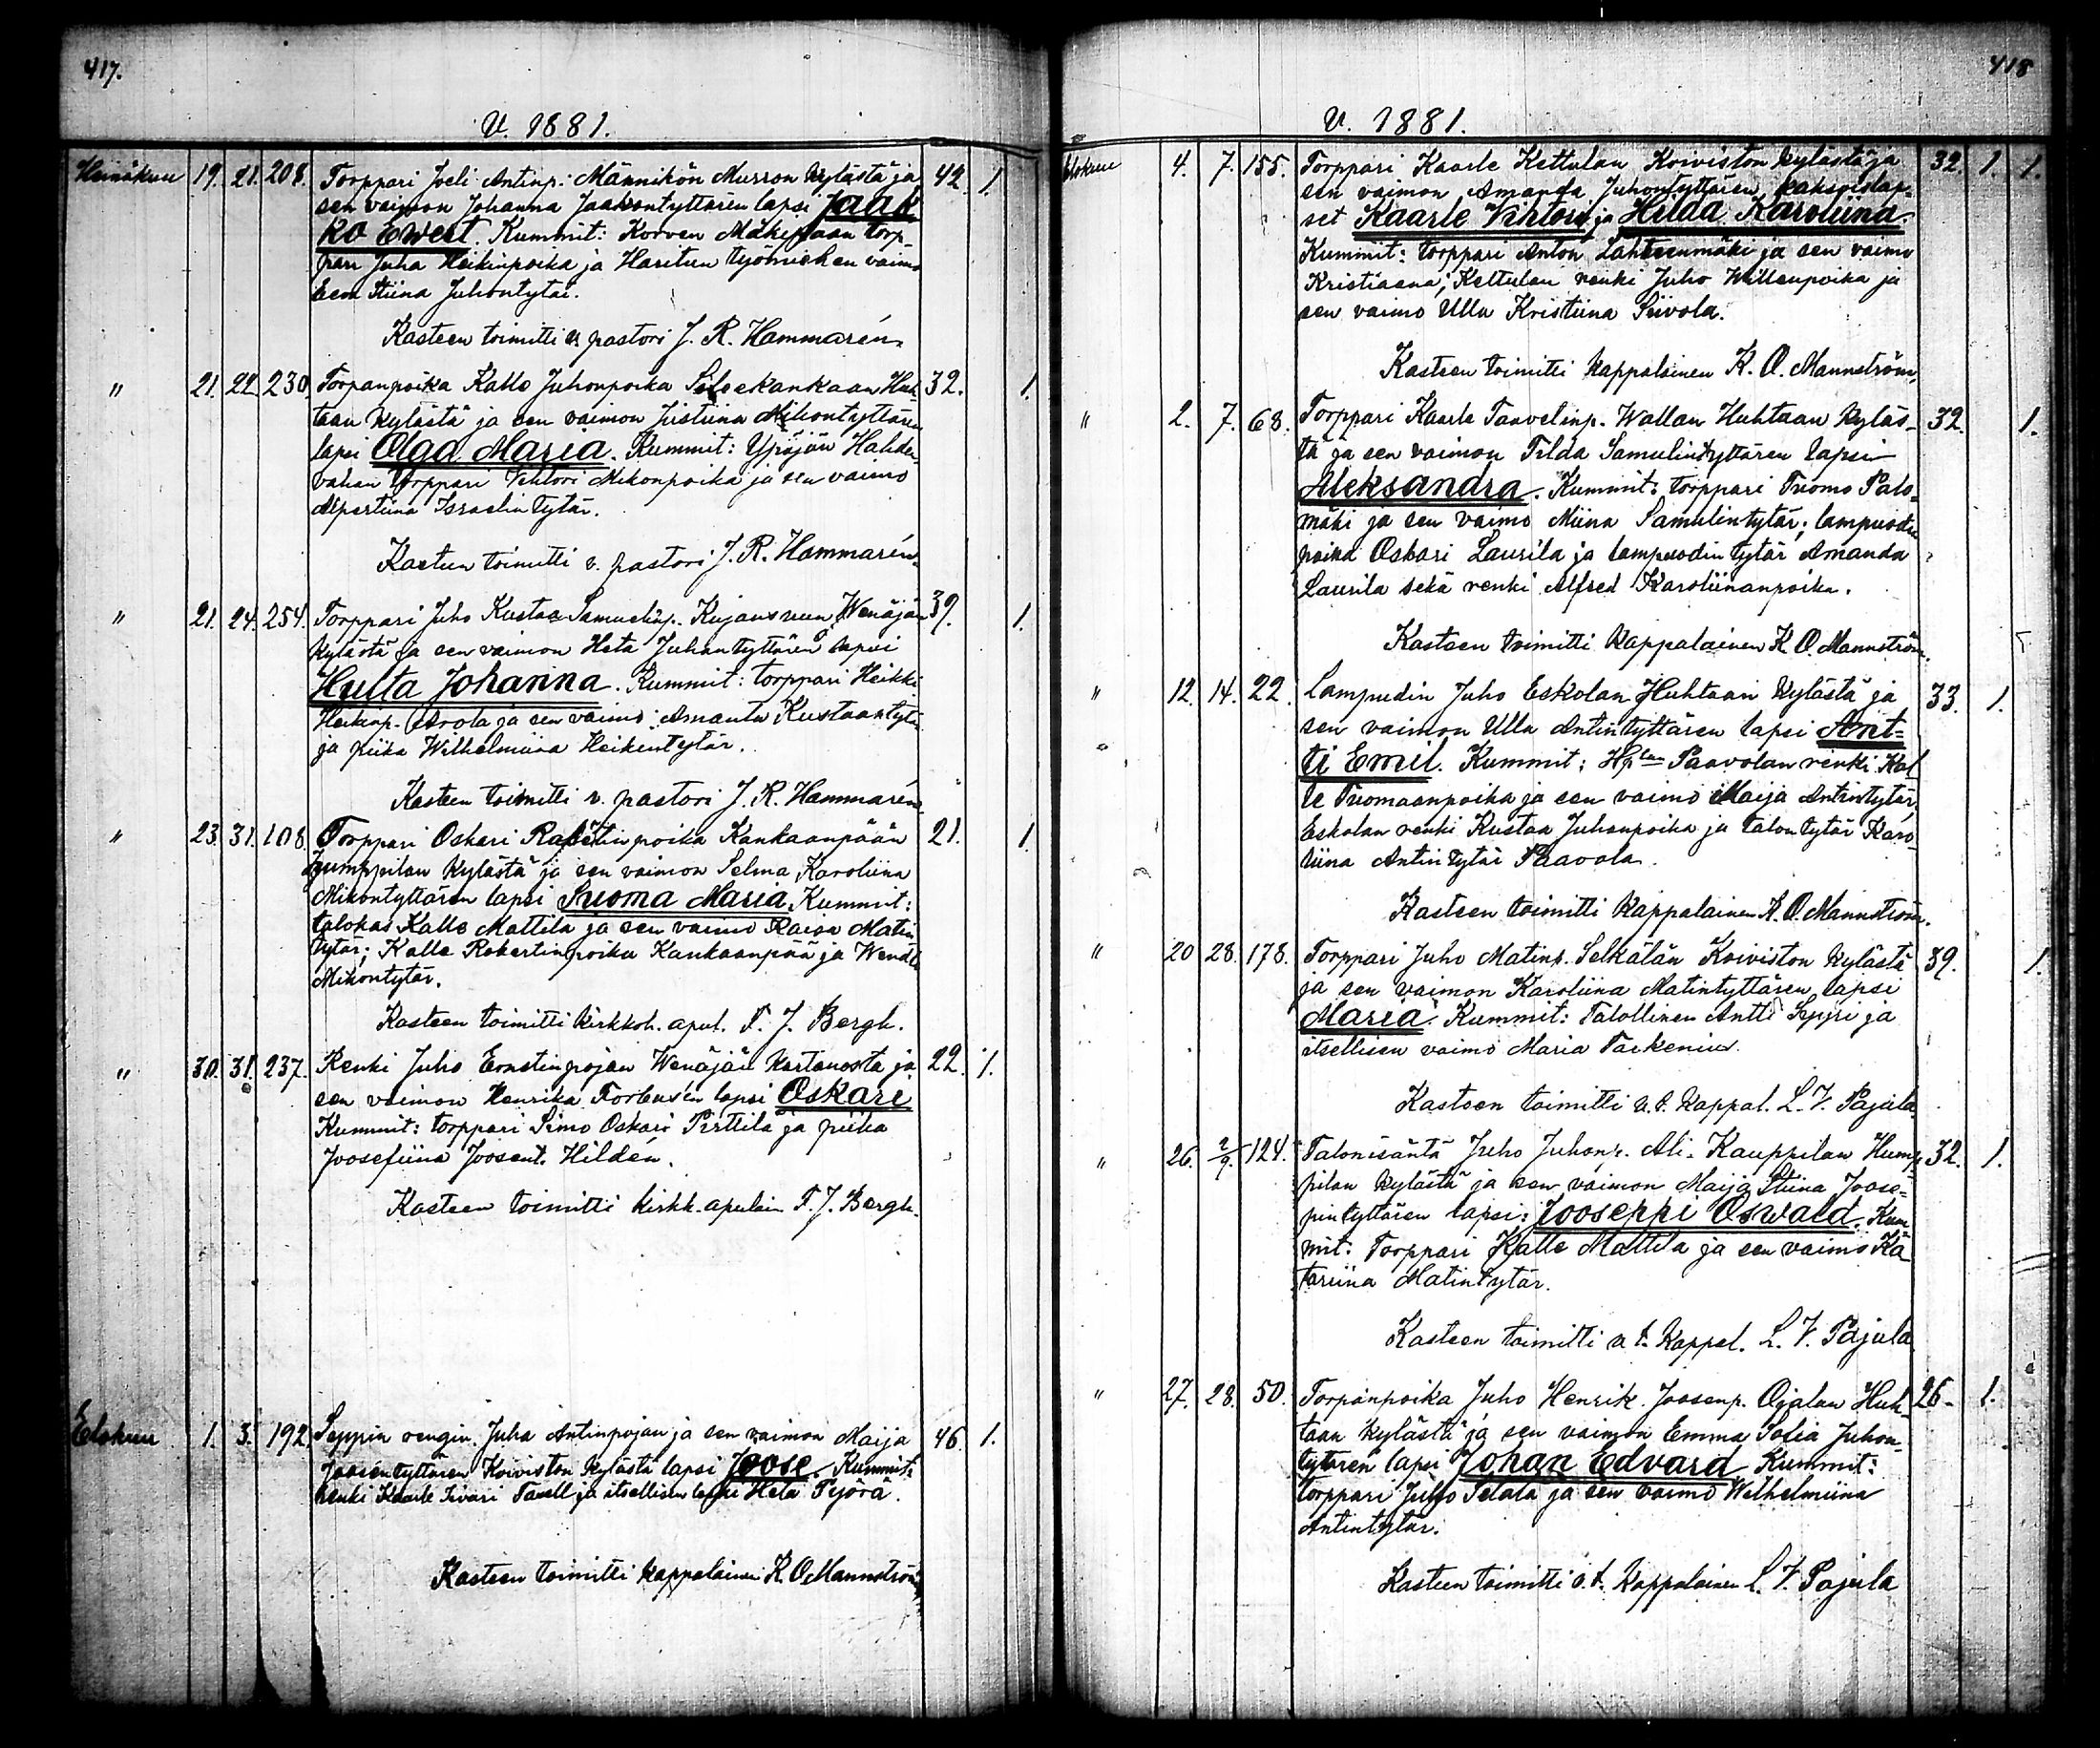 417.
V. 1881.
Heinäkuu 19. 21. 208. Torppari Joeli Antinp. Männikön Murron kylästä ja 42. 1.
sen vaimon Johanna Jaakontyttären lapsi Jaak
ko Ewert. Kummit: Korven Mäkipään torp-
pari Juha Heikinpoika ja Haritun työmiehen vaimo
Eeva Stiina Juhontytär.
Kasteen toimitti v. pastori J. R. Hammarén.
" 21. 22. 230 Torpanpoika Kalle Juhonpoika Huh- 32. 1.
taan kylästä ja sen vaimon Justiina Mikontyttären
lapsi Olga Maria. Kummit: Ypäjän
torppari Vihtori Mikonpoika ja sen vaimo
Alpertiina Israelintytär.
Kasteen toimitti v. pastori J. R. Hammarén.
" 21. 24. 254. Torppari Juho Kustaa Samuelinp. Kujansuun Wenäjän 39. 1.
kylästä ja sen vaimon Heta Juhontyttären lapsi
Hulta Johanna. Kummit: torppari Heikki
Heikinp. Arola ja sen vaimo Amanta Kustaantytär
ja piika Wilhelmiina Heikintytär.
Kasteen toimitti v. pastori J. R. Hammarén
" 23. 31. 108. Torppari Oskari Robertinpoika Kankaanpään 21. 1.
Humppilan kylästä ja sen vaimon Selma Karoliina
Mikontyttären lapsi Suoma Maria. Kummit:
talokas Kalle Mattila ja sen vaimo Kaisa Matin
tytär; Kalle Robertinpoika Kankaanpää ja Wendla
Mikontytär.
Kasteen toimitti kirkkoh. apul. F. J. Bergh.
" 30. 31. 237. Renki Juho Ernstinpojan Wenäjän kartanosta ja 22. 1.
sen vaimon Henrika Forbusén lapsi Oskari
Kummit: torppari Simo Oskari Pirttilä ja piika
Joosefiina Joosent. Hildén.
Kasteen toimitti kirkk. apulain F. J. Bergh.
Elokuu 1. 3. 192. Seppin rengin Juha Antinpojan ja sen vaimon Maija 46. 1.
Joosentyttären Koiviston kylästä lapsi Joose. Kummit:
renki Kaarle Iivari Taxell ja itsellisen leski Heta Pyörä.
Kasteen toimitti kappalainen K. O. Mannström
418
V. 1881.
Elokuu 4. 7. 155. Torppari Kaarle Kettulan Koiviston kylästä ja 32. 1. 1.
sen vaimon Amanda Juhontyttären kaksoislap-
set Kaarle Vihtori ja Hilda Karoliina.
Kummit: torppari Anton Lähteenmäki ja sen vaimo
Kristiaana; Kettulan renki Juho Willenpoika ja
sen vaimo Ulla Kristiina Siivola.
Kasteen toimitti kappalainen K. O. Mannström,
" 2. 7. 68. Torppari Kaarle Taavetinp. Wallan Huhtaan kyläs- 32. 1.
tä ja sen vaimon Tilda Samulintyttären lapsi
Aleksandra. Kummit: torppari Tuomo Palo-
mäki ja sen vaimo Miina Samulintytär; lampuodin
poika Oskari Laurila ja lampuodin tytär Amanda
Laurila sekä renki Alfred Karoliinanpoika.
Kasteen toimitti kappalainen K. O. Mannström.
" 12. 14. 22. Lampudin Juho Eskolan Huhtaan kylästä ja 33. 1.
sen vaimon Ulla Antintyttären lapsi Ant-
ti Emil. Kummit: Hp:lan Paavolan renki Kal
le Tuomaanpoika ja sen vaimo Maija Antintytär,
Eskolan renki Kustaa Juhonpoika ja talon tytär Karo-
liina Antintytär Paavola.
Kasteen toimitti kappalainen K. O. Mannström.
" 20 28. 178. Torppari Juho Matinp. Selkälän Koiviston kylästä 39. 1.
ja sen vaimon Karoliina Matintyttären lapsi
Maria. Kummit: Talollinen Antti Seppi ja
itsellisen vaimo Maria Tarkenius.
Kasteen toimitti v. t. kappal. L. V. Pajula
" 26. 2/9. 124. Talonisäntä Juho Juhonp. Ali-Kauppilan Hump- 32. 1.
pilan kylästä ja sen vaimon Maija Stiina Joose-
pintyttären lapsi: Jooseppi Oswald. Kum-
mit: Torppari Kalle Mattila ja sen vaimo Ka
tariina Matintytär.
Kasteen toimitti v. t. kappal. L. V. Pajula
" 27. 28. 50. Torpanpoika Juho Henrik Joosenp. Ojalan Huh- 26. 1.
taan kylästä ja sen vaimon Emma Sofia Juhon-
tytären lapsi Johan Edvard Kummit:
torppari Juho Selala ja sen vaimo Wilhelmiina
Antintytär.
Kasteen toimitti v. t. kappalainen L. V. Pajula